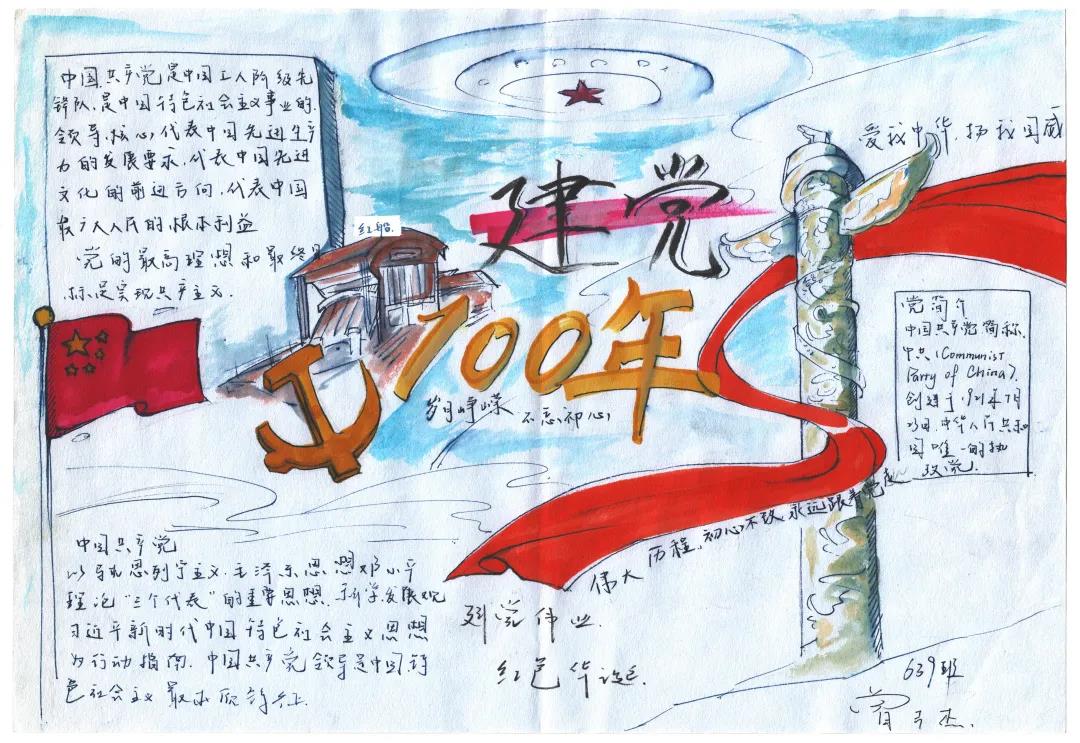 中国共产党是中国工人阶级先
锋队,是中国特色社会主义事业的
领导核心,代表中国先进生产
力的发展要求,代表中国先进
文化的前进方向,代表中国
最广大人民的根本利益
党的最高理想和最终目
标是实现共产主义.
红船.
建党
100年
岁月峥嵘 不忘初心
爱我中华 扬我国威
党简介
中国共产党简称
中共(Communist
Party of China),
创建于1921年7月
23日,中华人民共和
国唯一的执
政党.
伟大历程,初心不改,永远跟着党走
中国共产党
以马克思列宁主义.毛泽东思想邓小平
理论"三个代表"的重要思想.科学发展观
习近平新时代中国特色社会主义思想
为行动指南.中国共产党领导是中国特
色社会主义最本质特征.
建党伟业.
红色华诞.
639班